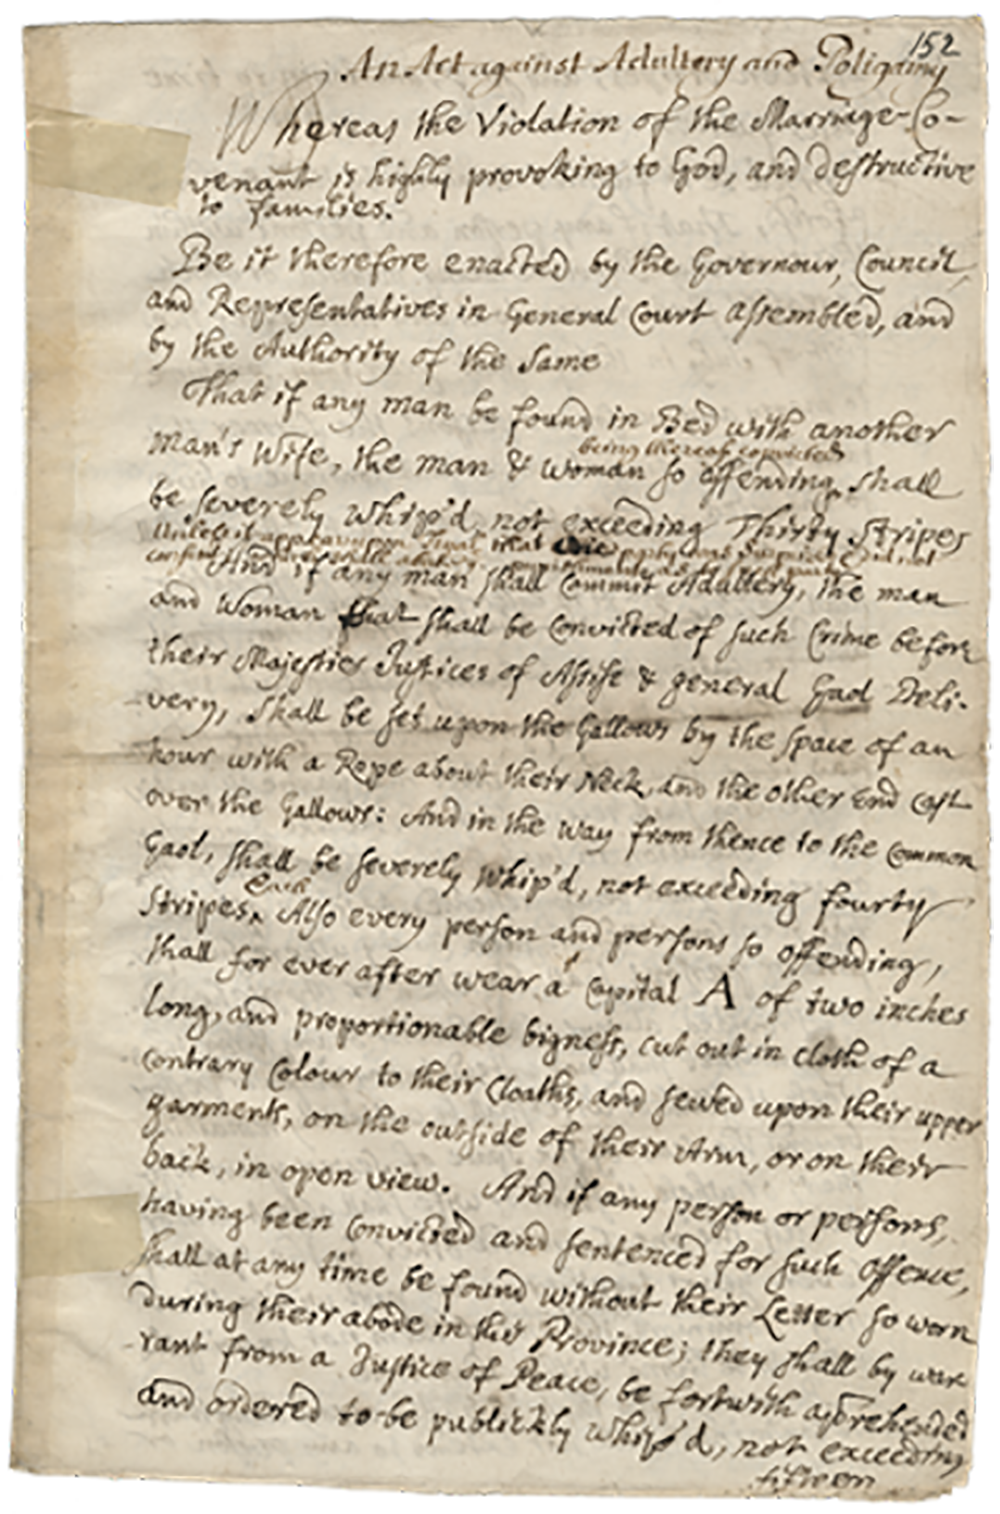 152
An Act against Adultery and Poligamy
Whereas the Violation of the Marriage-Co-
venant is highly provoking to God, and destructive
to families.
Be it therefore enacted by the Governour, Council,
and Representatives in General Court assembled, and
by the Authority of the Same
That if any man be found in Bed with another
being thereof convicted
man's Wife, the man & woman so offending, shall
be severely whip'd, not exceeding Thirty Stripes
Unless it appear upon Tryal that one party was surprized & did not
consent
And if any man shall commit Adultery, the man
and woman that shall be convicted of such Crime before
their Majesties Justices of Assise & general Gaol Deli-
very, shall be set upon the Gallows by the space of an
hour with a Rope about their Neck, and the other End cast
over the Gallows: And in the way from thence to the common
Gaol, shall be severely whip'd, not exceeding fourty
Each
Stripes. Also every person and persons so offending,
shall for ever after wear a capital A of two inches
long, and proportionable bigness, cut out in cloth of a
contrary Colour to their Cloaths, and sewed upon their upper
garments, on the outside of their Arm, or on their
back, in open view. And if any person or persons,
having been convicted and sentenced for such Offence,
shall at any time be found without their Letter so worn
during their abode in this Province; they shall by war-
rant from a Justice of Peace, be forthwith apprehended
and ordered to be publickly whip'd, not exceeding
fifteen